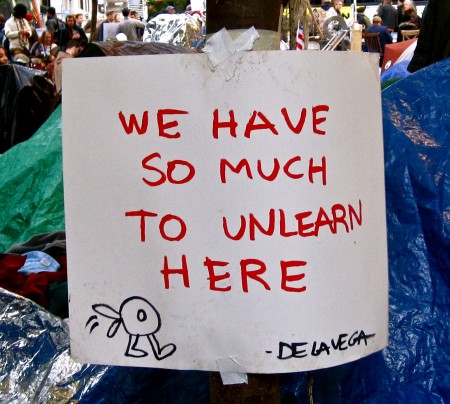 WE HAVE
SO MUCH
TO UNLEARN
HERE
- DE LA VEGA